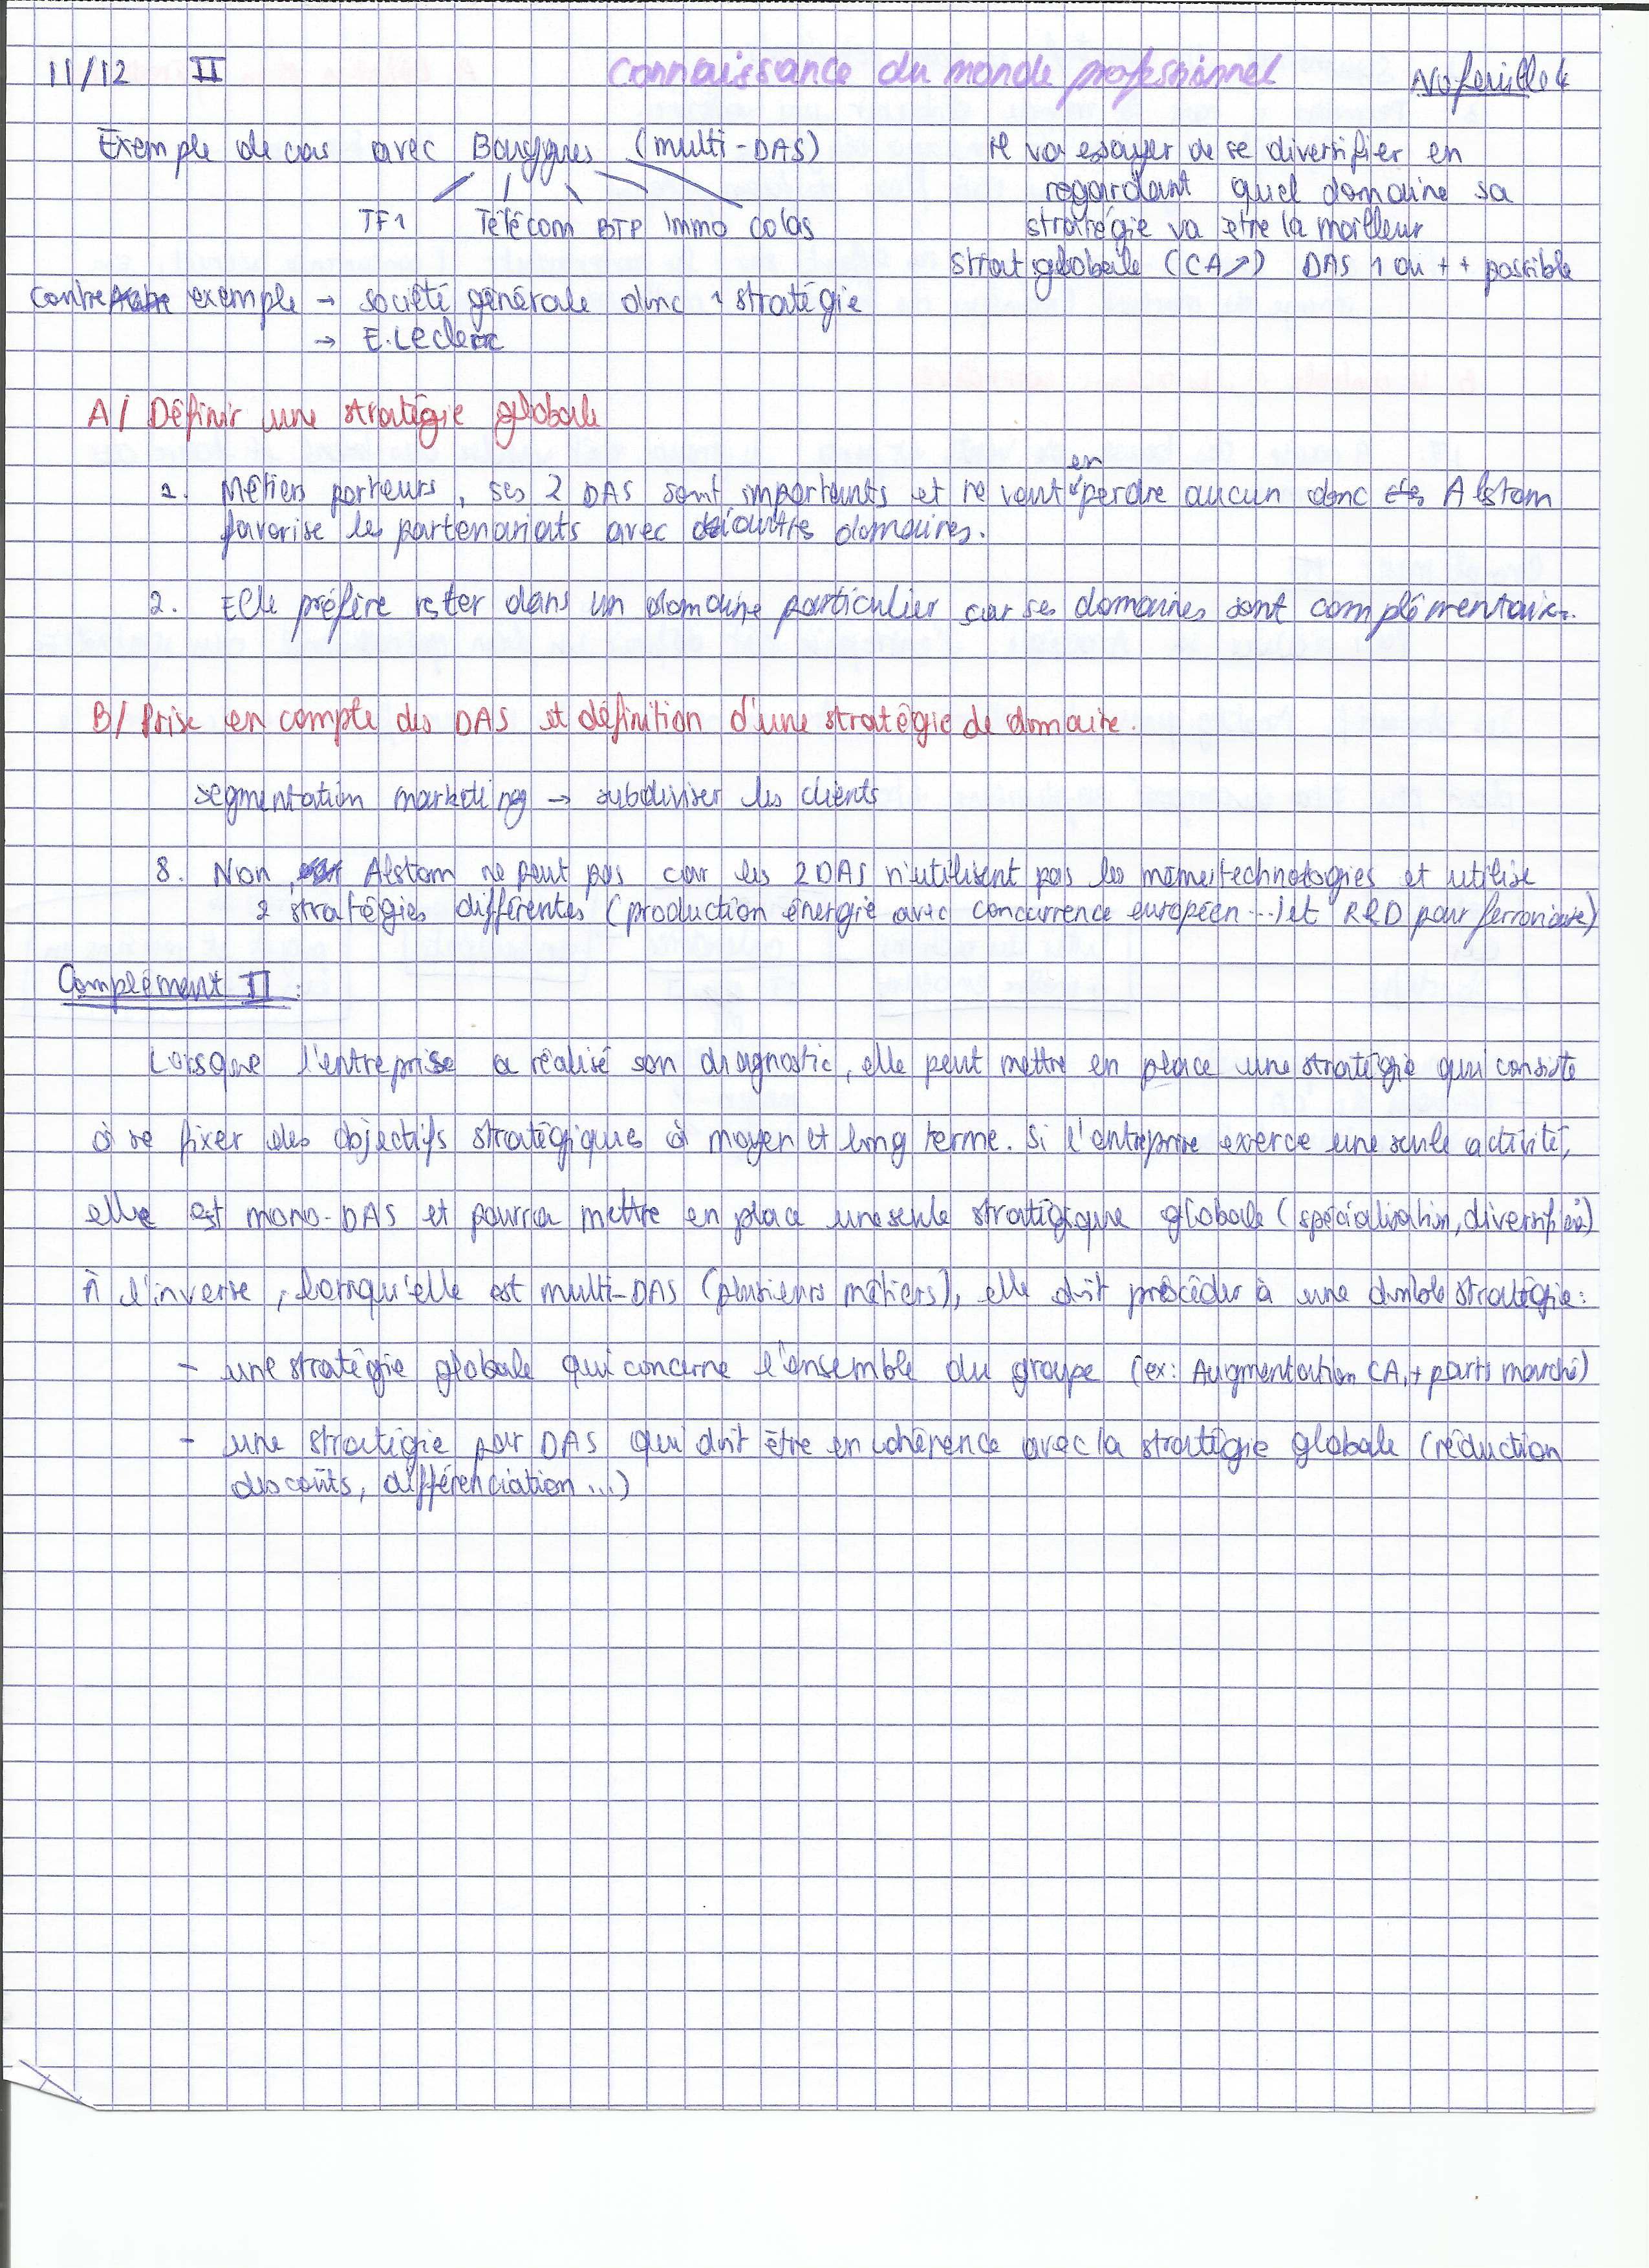 11/12 II Connaissance du monde professionnel No feuille 4
Exemple de cas avec Bouygues (multi-DAS)
TF1 Télécom BTP Immo Colas
il va essayer de se diversifier en
regardant quel domaine sa
stratégie va être la meilleur
strat globale (CA↗) DAS 1 ou + + possible
Contre exemple → société générale donc 1 stratégie
→ E.Leclerc
A/ Définir une stratégie globale
1. Métiers porteurs, ses 2 DAS sont importants et ne veut en perdre aucun donc Alstom
favorise les partenariats avec d'autres domaines.
2. Elle préfère rester dans un domaine particulier car ses domaines sont complémentaires.
B/ Prise en compte des DAS et définition d'une stratégie de domaine.
segmentation marketing → subdiviser les clients
8. Non, Alstom ne peut pas car les 2 DAS n'utilisent pas les mêmes technologies et utilise
2 stratégies différentes (production énergie avec concurrence européen ...) et R&D pour ferroviaire)
Complément II :
Lorsque l'entreprise a réalisé son diagnostic, elle peut mettre en place une stratégie qui consiste
à se fixer des objectifs stratégiques à moyen et long terme. Si l'entreprise exerce une seule activité,
elle est mono-DAS et pourra mettre en place une seule stratégique globale (spécialisation, diversifié)
À l'inverse, lorsqu'elle est multi-DAS (plusieurs métiers), elle doit procéder à une double stratégie :
- une stratégie globale qui concerne l'ensemble du groupe (ex: Augmentation CA, + parts marché)
- une stratégie par DAS qui doit être en cohérence avec la stratégie globale (réduction
des coûts, différenciation ...)